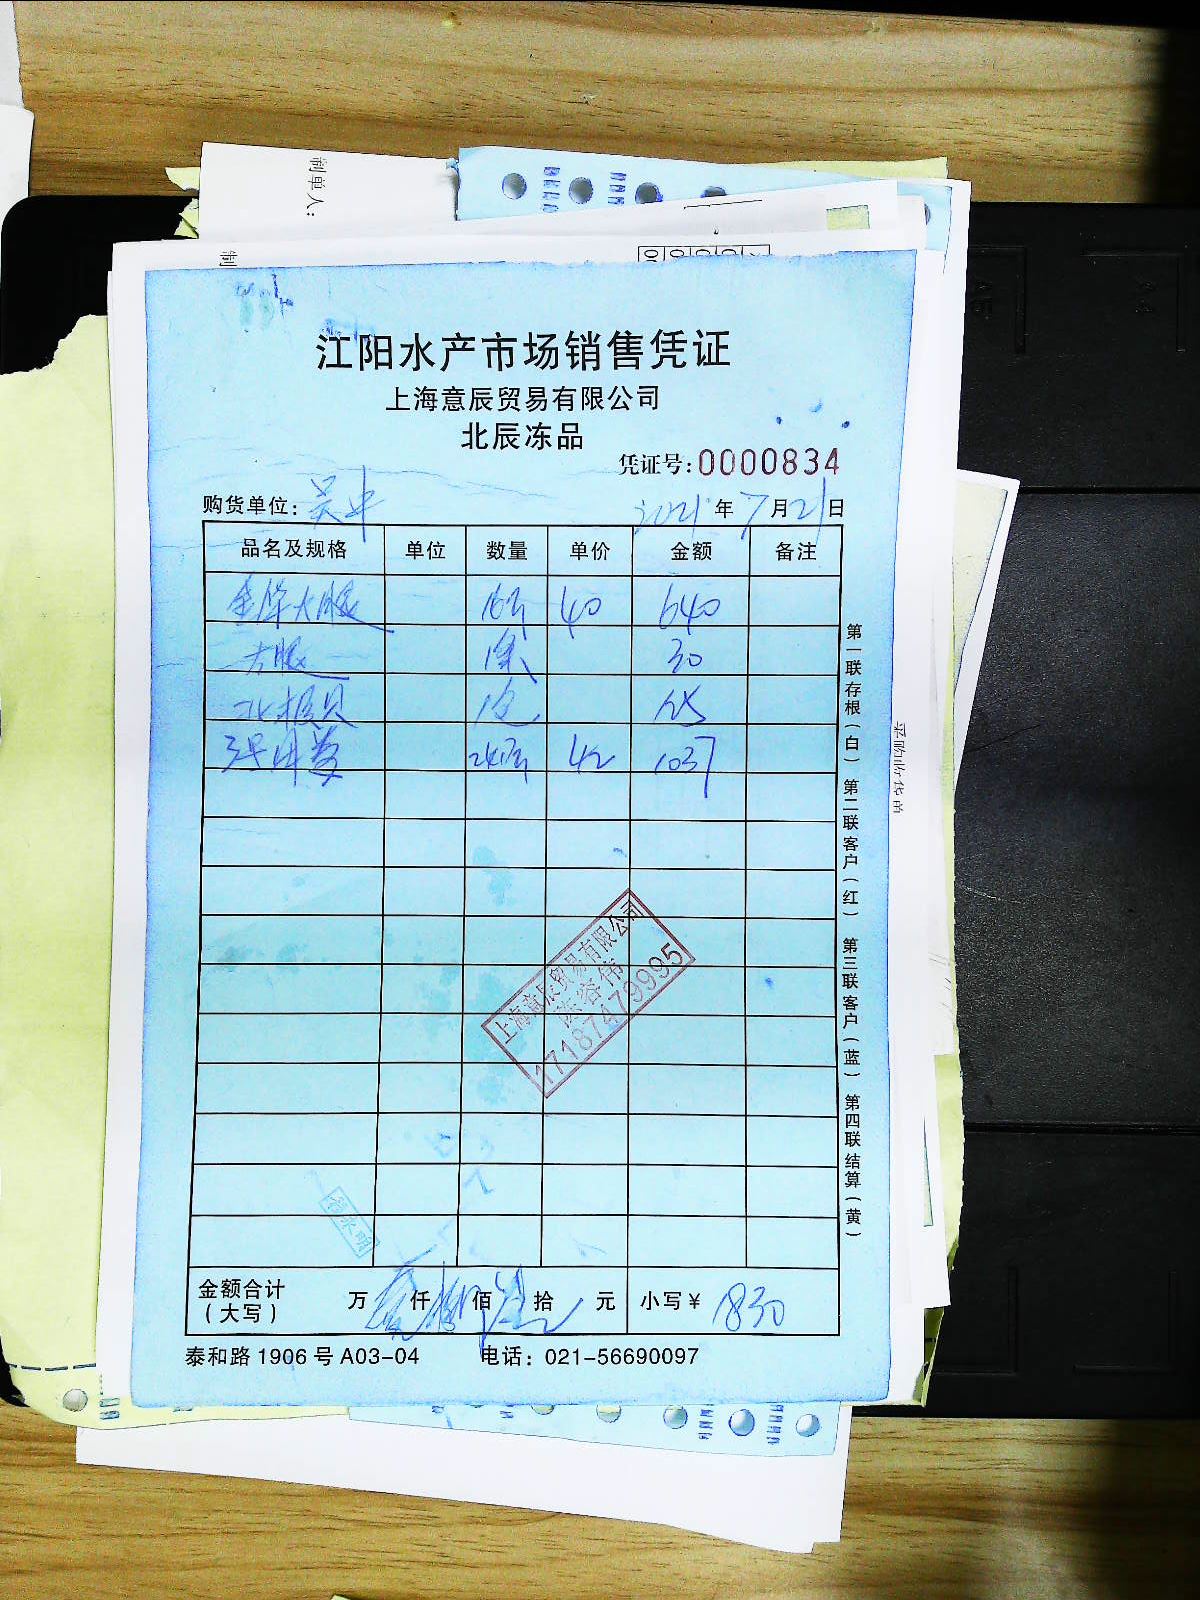 制单人：
制
江阳水产市场销售凭证
上海意辰贸易有限公司
北辰冻品
凭证号：0000834
购货单位：吴中 2021年7月21日
品名及规格 单位 数量 单价 金额 备注
大腿 40 640
大腿 30
北极贝
42 1037
上海意辰贸易有限公司
17187479995
金额合计（大写） 万 仟 佰 拾 元 小写￥ 1830
泰和路1906号A03-04 电话：021-56690097
第一联存根（白） 第二联客户（红） 第三联客户（蓝） 第四联结算（黄）
采购收货单